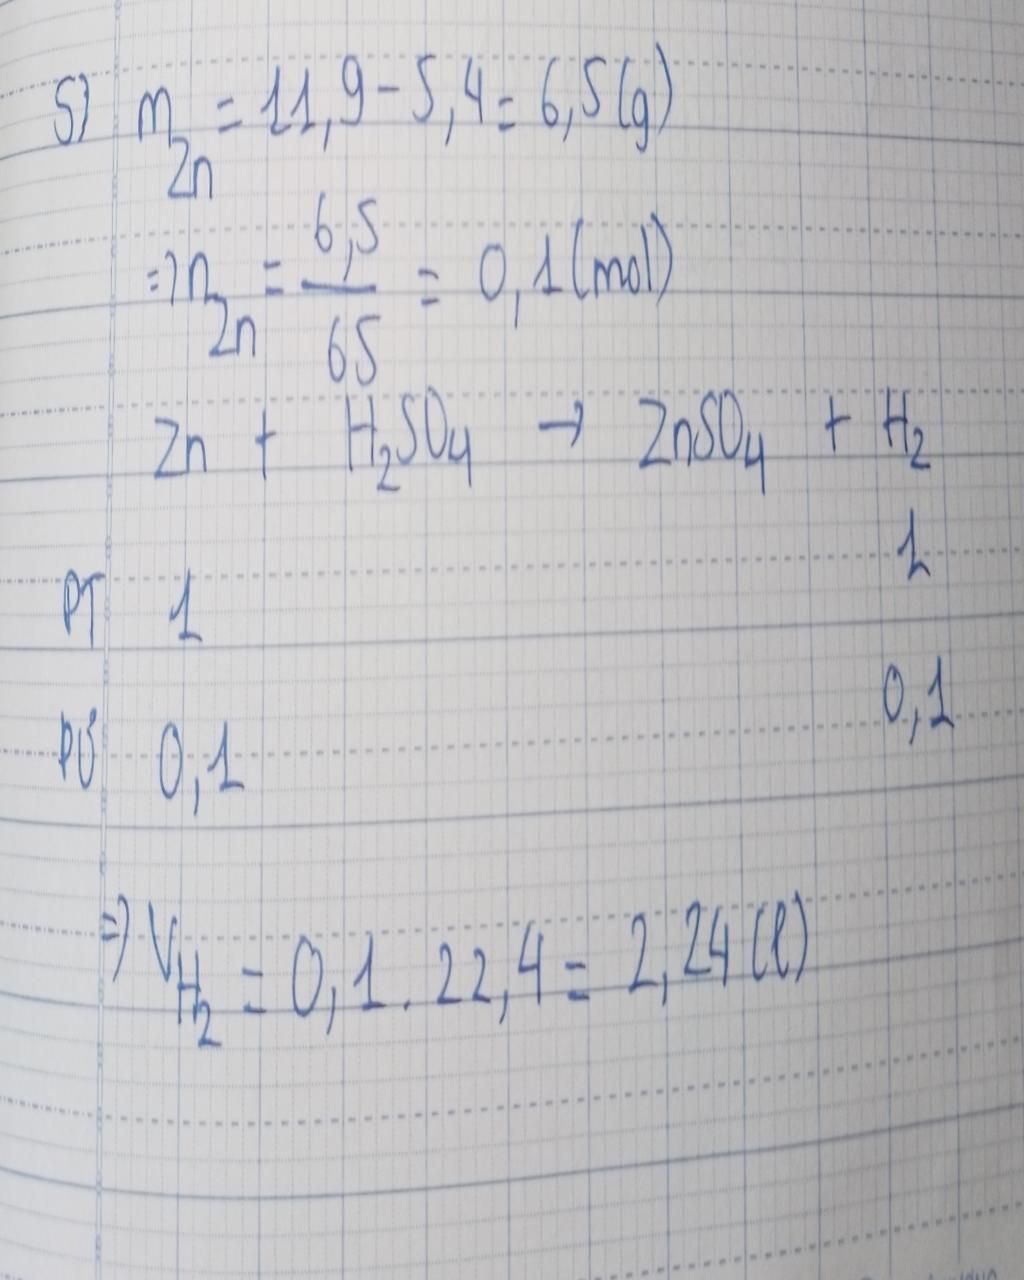 5) m Zn = 11,9 - 5,4 = 6,5 (g)
=> n Zn = 6,5 / 65 = 0,1 (mol)
Zn + H₂SO₄ → ZnSO₄ + H₂
PT 1 1
PƯ 0,1 0,1
=> V H₂ = 0,1 . 22,4 = 2,24 (l)